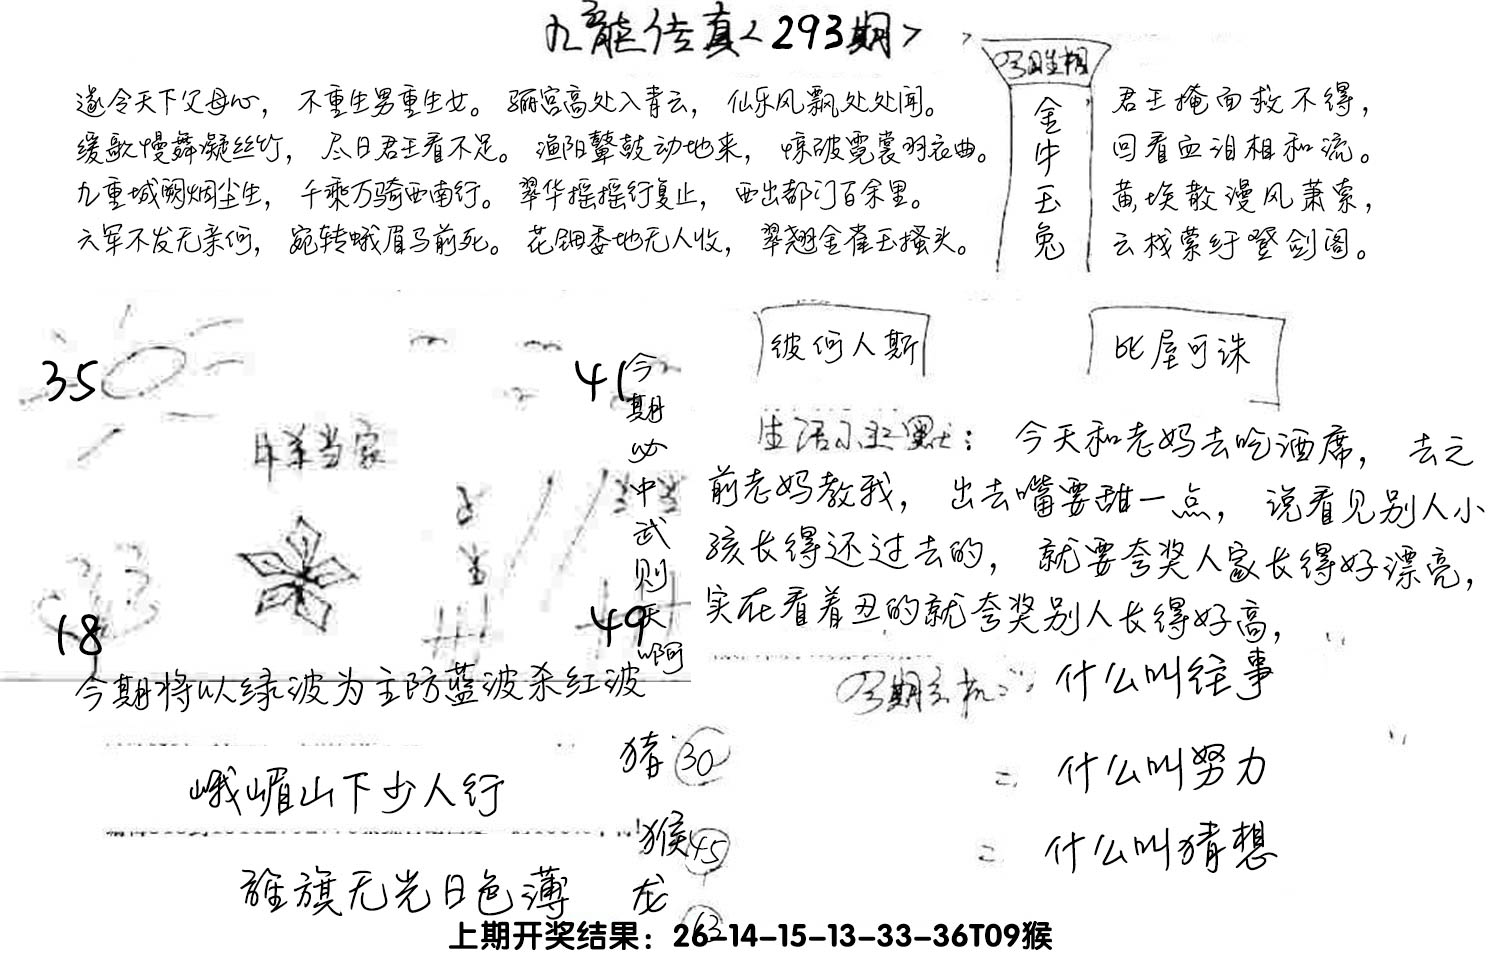 九龍传真<293期>
今日生相
金牛玉兔
遂令天下父母心，不重生男重生女。骊宫高处入青云，仙乐风飘处处闻。
缓歌慢舞凝丝竹，尽日君王看不足。渔阳鼙鼓动地来，惊破霓裳羽衣曲。
九重城阙烟尘生，千乘万骑西南行。翠华摇摇行复止，西出都门百余里。
六军不发无奈何，宛转蛾眉马前死。花钿委地无人收，翠翘金雀玉搔头。
君王掩面救不得，
回看血泪相和流。
黄埃散漫风萧索，
云栈萦纡登剑阁。
35
41
今期必中武则天啊
18
49
今期将以绿波为主防蓝波杀红波
彼何人斯
比屋可诛
生活小幽默：今天和老妈去吃酒席，去之
前老妈教我，出去嘴要甜一点，说看见别人小
孩长得还过去的，就要夸奖人家长得好漂亮，
实在看着丑的就夸奖别人长得好高，
今期玄机： 什么叫往事
= 什么叫努力
= 什么叫猜想
峨嵋山下少人行
旌旗无光日色薄
猪 30
猴 45
龙 63
上期开奖结果：26-14-15-13-33-36T09猴